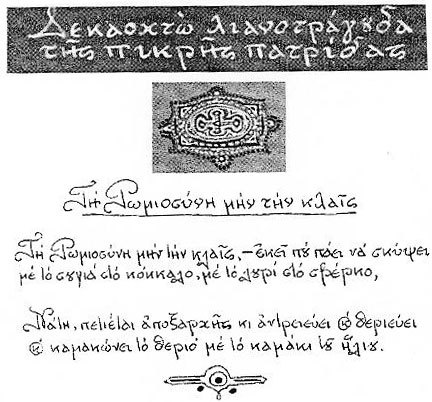 Δεκαοχτὼ λιανοτράγουδα
τῆς πικρῆς πατρίδας
Τὴ Ρωμιοσύνη μὴν τὴν κλαῖς
Τὴ Ρωμιοσύνη μὴν τὴν κλαῖς, – ἐκεῖ πού πάει νά σκύψει
μέ τό σουγιά στό κόκκαλο, μέ τό λουρί στό σβέρκο,
Νάτη, πετιέται ἀποξαρχῆς κι ἀντρειεύει καί θεριεύει
καί καμακώνει τό θεριό μέ τό καμάκι τοῦ ἥλιου.